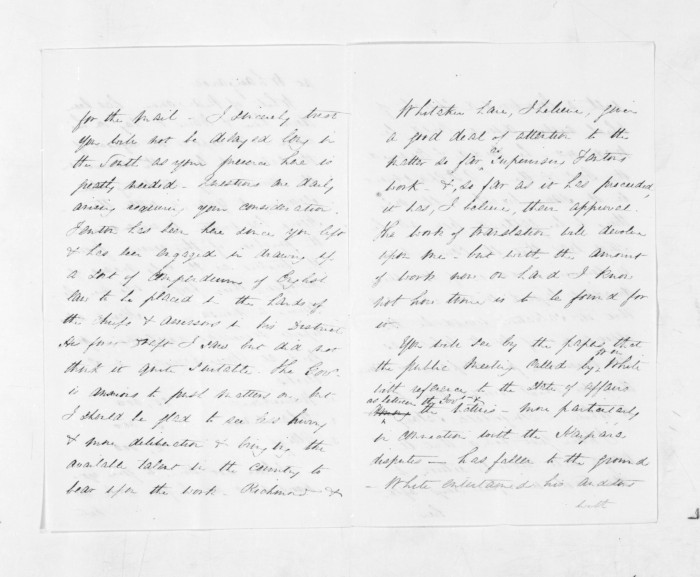 for the Mail - I sincerely trust
you will not be delayed long in
the South as your presence here is
greatly needed - Questions are daily
arising requiring your consideration.
Fenton has been here since you left
& has been engaged in drawing up
a sort of Compendium of English
Law to be placed in the hands of
the chiefs & assessors in his District
His first draft I saw but did not
think it quite suitable. The Govr.
is anxious to push matters on, but
I should be glad to see less hurry
& more deliberation & bring in the
available talent in the country to
bear upon the work. Richmond &
Whitaker have, I believe, given
a good deal of attention to the
matter so far "Supervision" Fentons
work &, so far as it has proceeded,
it has, I believe, their approval.
The work of translation will devolve
upon me - but with the amount
of work now on hand I know
not how time is to be found for
it.
You will see by the papers that
the public meeting called by Mr White
with reference to the State of affairs
as between the Govt &
the Natives - more particularly
in connection with the Ngapuhi
disputes - has fallen to the ground
- White entertained his auditors
with